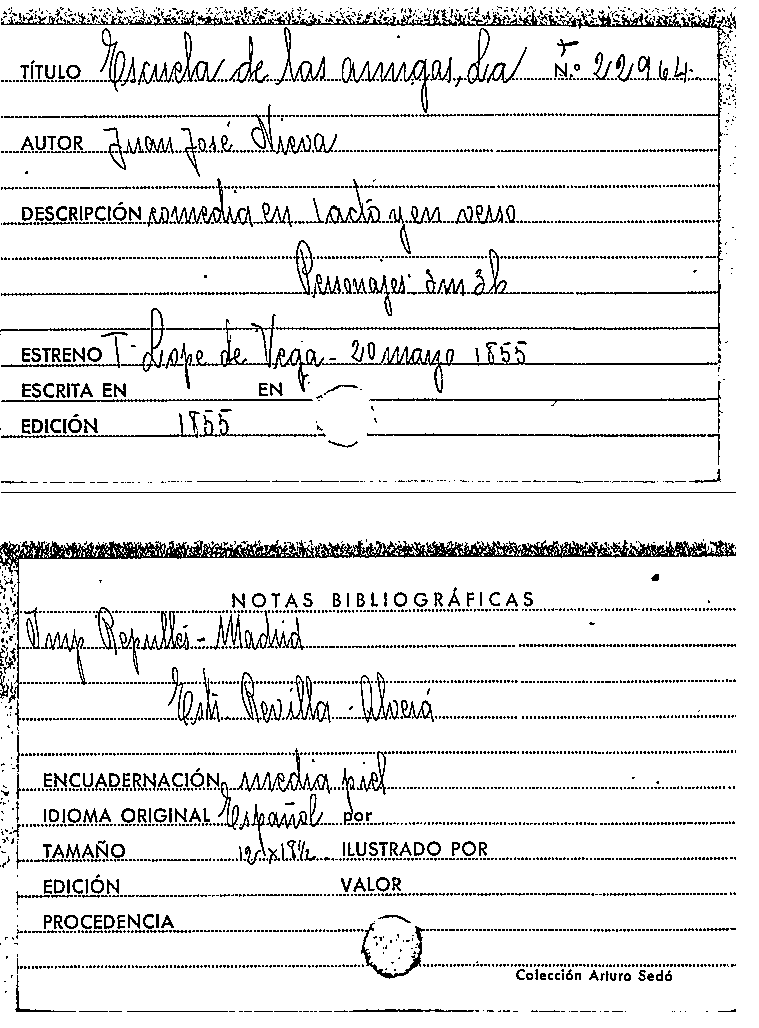 TÍTULO Escuela de las amigas, La N.º 22964
AUTOR Juan José Nieva
DESCRIPCIÓN comedia en 1 acto y en verso
Personajes: 3m 3h
ESTRENO T. Lope de Vega - 20 mayo 1855
ESCRITA EN EN
EDICIÓN 1855
NOTAS BIBLIOGRÁFICAS
Imp Repullés - Madrid
Revilla - Alverá
ENCUADERNACIÓN media piel
IDIOMA ORIGINAL Español por
TAMAÑO ILUSTRADO POR
EDICIÓN VALOR
PROCEDENCIA
Colección Arturo Sedó